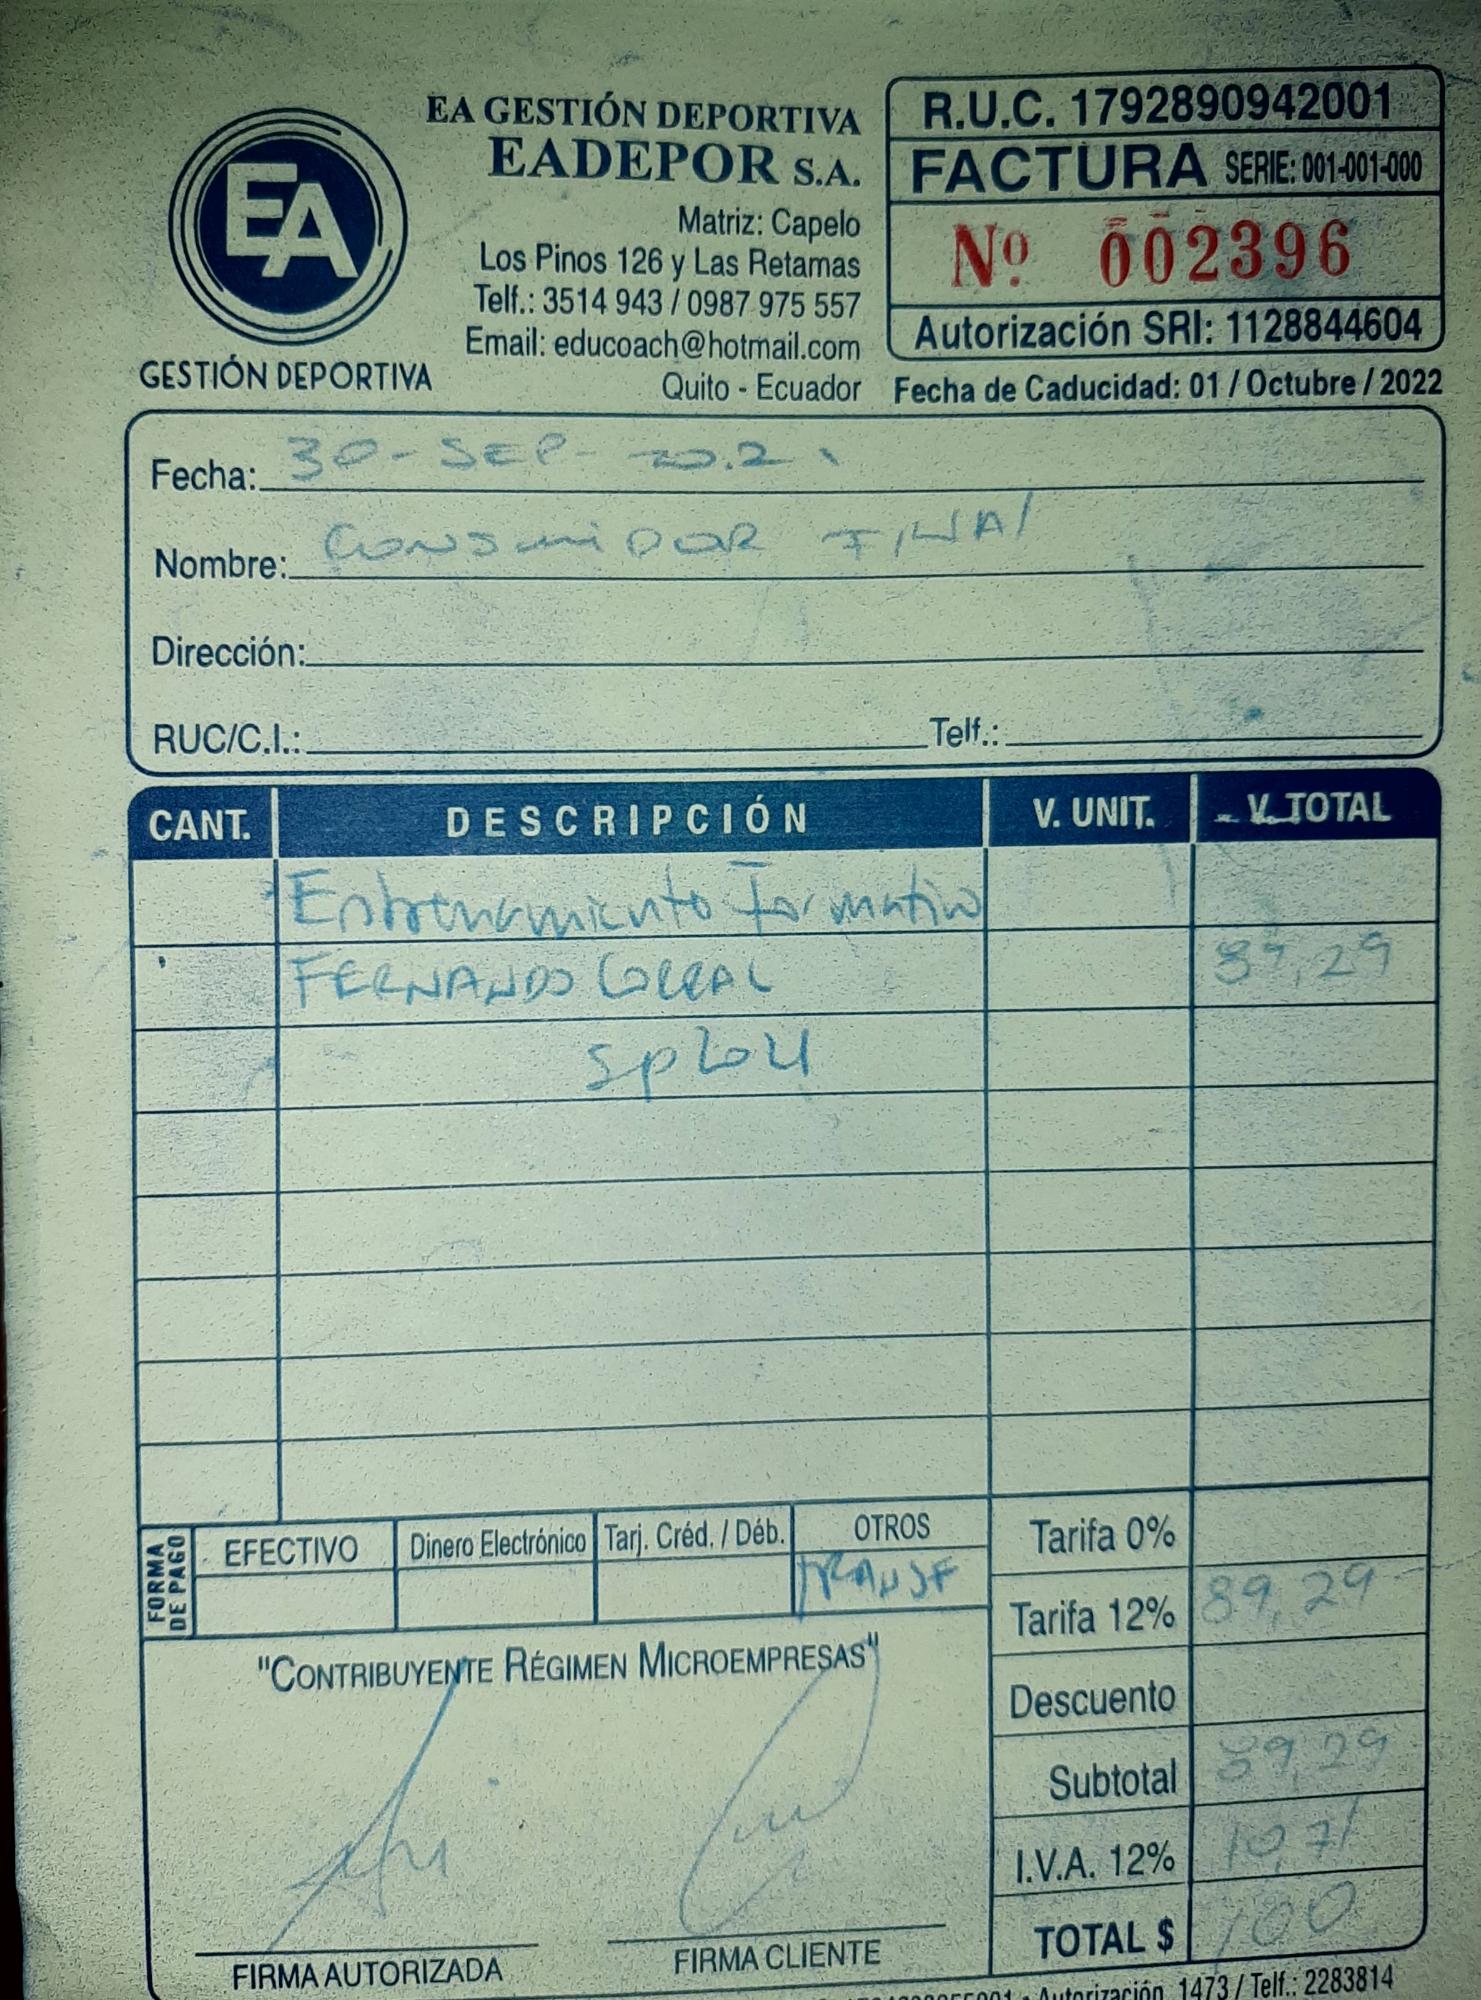 EA GESTIÓN DEPORTIVA
EADEPOR S.A.
Matriz: Capelo
Los Pinos 126 y Las Retamas
Telf.: 3514 943 / 0987 975 557
Email: educoach@hotmail.com
Quito - Ecuador
EA
GESTIÓN DEPORTIVA
R.U.C. 1792890942001
FACTURA SERIE: 001-001-000
Nº 002396
Autorización SRI: 1128844604
Fecha de Caducidad: 01 / Octubre / 2022
Fecha: 30 - SEP -
Nombre: CONSUMIDOR FINAL
Dirección:
RUC/C.I.: Telf.:
CANT. DESCRIPCIÓN V. UNIT. V. TOTAL
Entrenamiento Formativo
FERNANDO CORRAL 89,29
FORMA DE PAGO
EFECTIVO Dinero Electrónico Tarj. Créd. / Déb. OTROS
TRANSF
Tarifa 0%
Tarifa 12% 89,29
Descuento
Subtotal 89,29
I.V.A. 12% 10,71
TOTAL $ 100
"CONTRIBUYENTE RÉGIMEN MICROEMPRESAS"
FIRMA AUTORIZADA FIRMA CLIENTE
Autorización 1473 / Telf.: 2283814